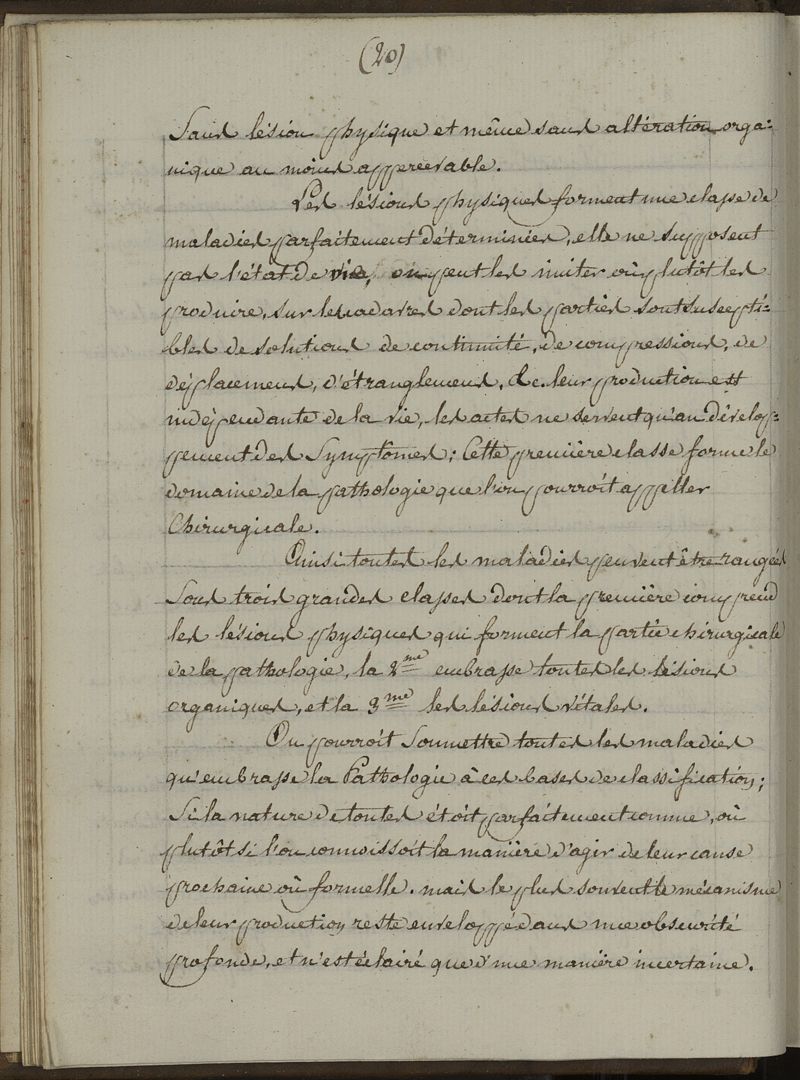 (20)
Sans lésion physique et même sans altération orga=
nique au moins appercevable.
Les lésions physiques forment une classe de
maladies parfaitement déterminées, elle ne supposent
pas l'état de vie, on peut les imiter où plutôt les
produire, sur les cadavres dont les parties sont suscepti=
bles de solutions de continuité, de compressions, de
déplacemens, d'étranglemens, &c. leur production est
indépendante de la vie, les actes ne servent qu'au dévelop=
pement des Symptômes; Cette première classe forme le
domaine de la pathologie que l'on pourroit appeller
Chirurgicale.
Ainsi toutes les maladies peuvent être rangées
Sous trois grandes classes dont la première comprend
les lésions physiques qui forment la partie chirurgicale
de la pathologie, la 2me embrasse toutes les lésions
organiques, et la 3me les lésions vitales.
On pourroit Soumettre toutes les maladies
qu'embrasse la Pathologie à ces bases de classification;
Si la nature de toutes étoit parfaitement connue, où
plutôt si l'on connoissoit la manière d'agir de leur cause
prochaine où formelle. mais le plus souvent le mécanisme
de leur production reste enveloppé dans une obscurité
profonde, et n'est éclairé que d'une manière incertaine.